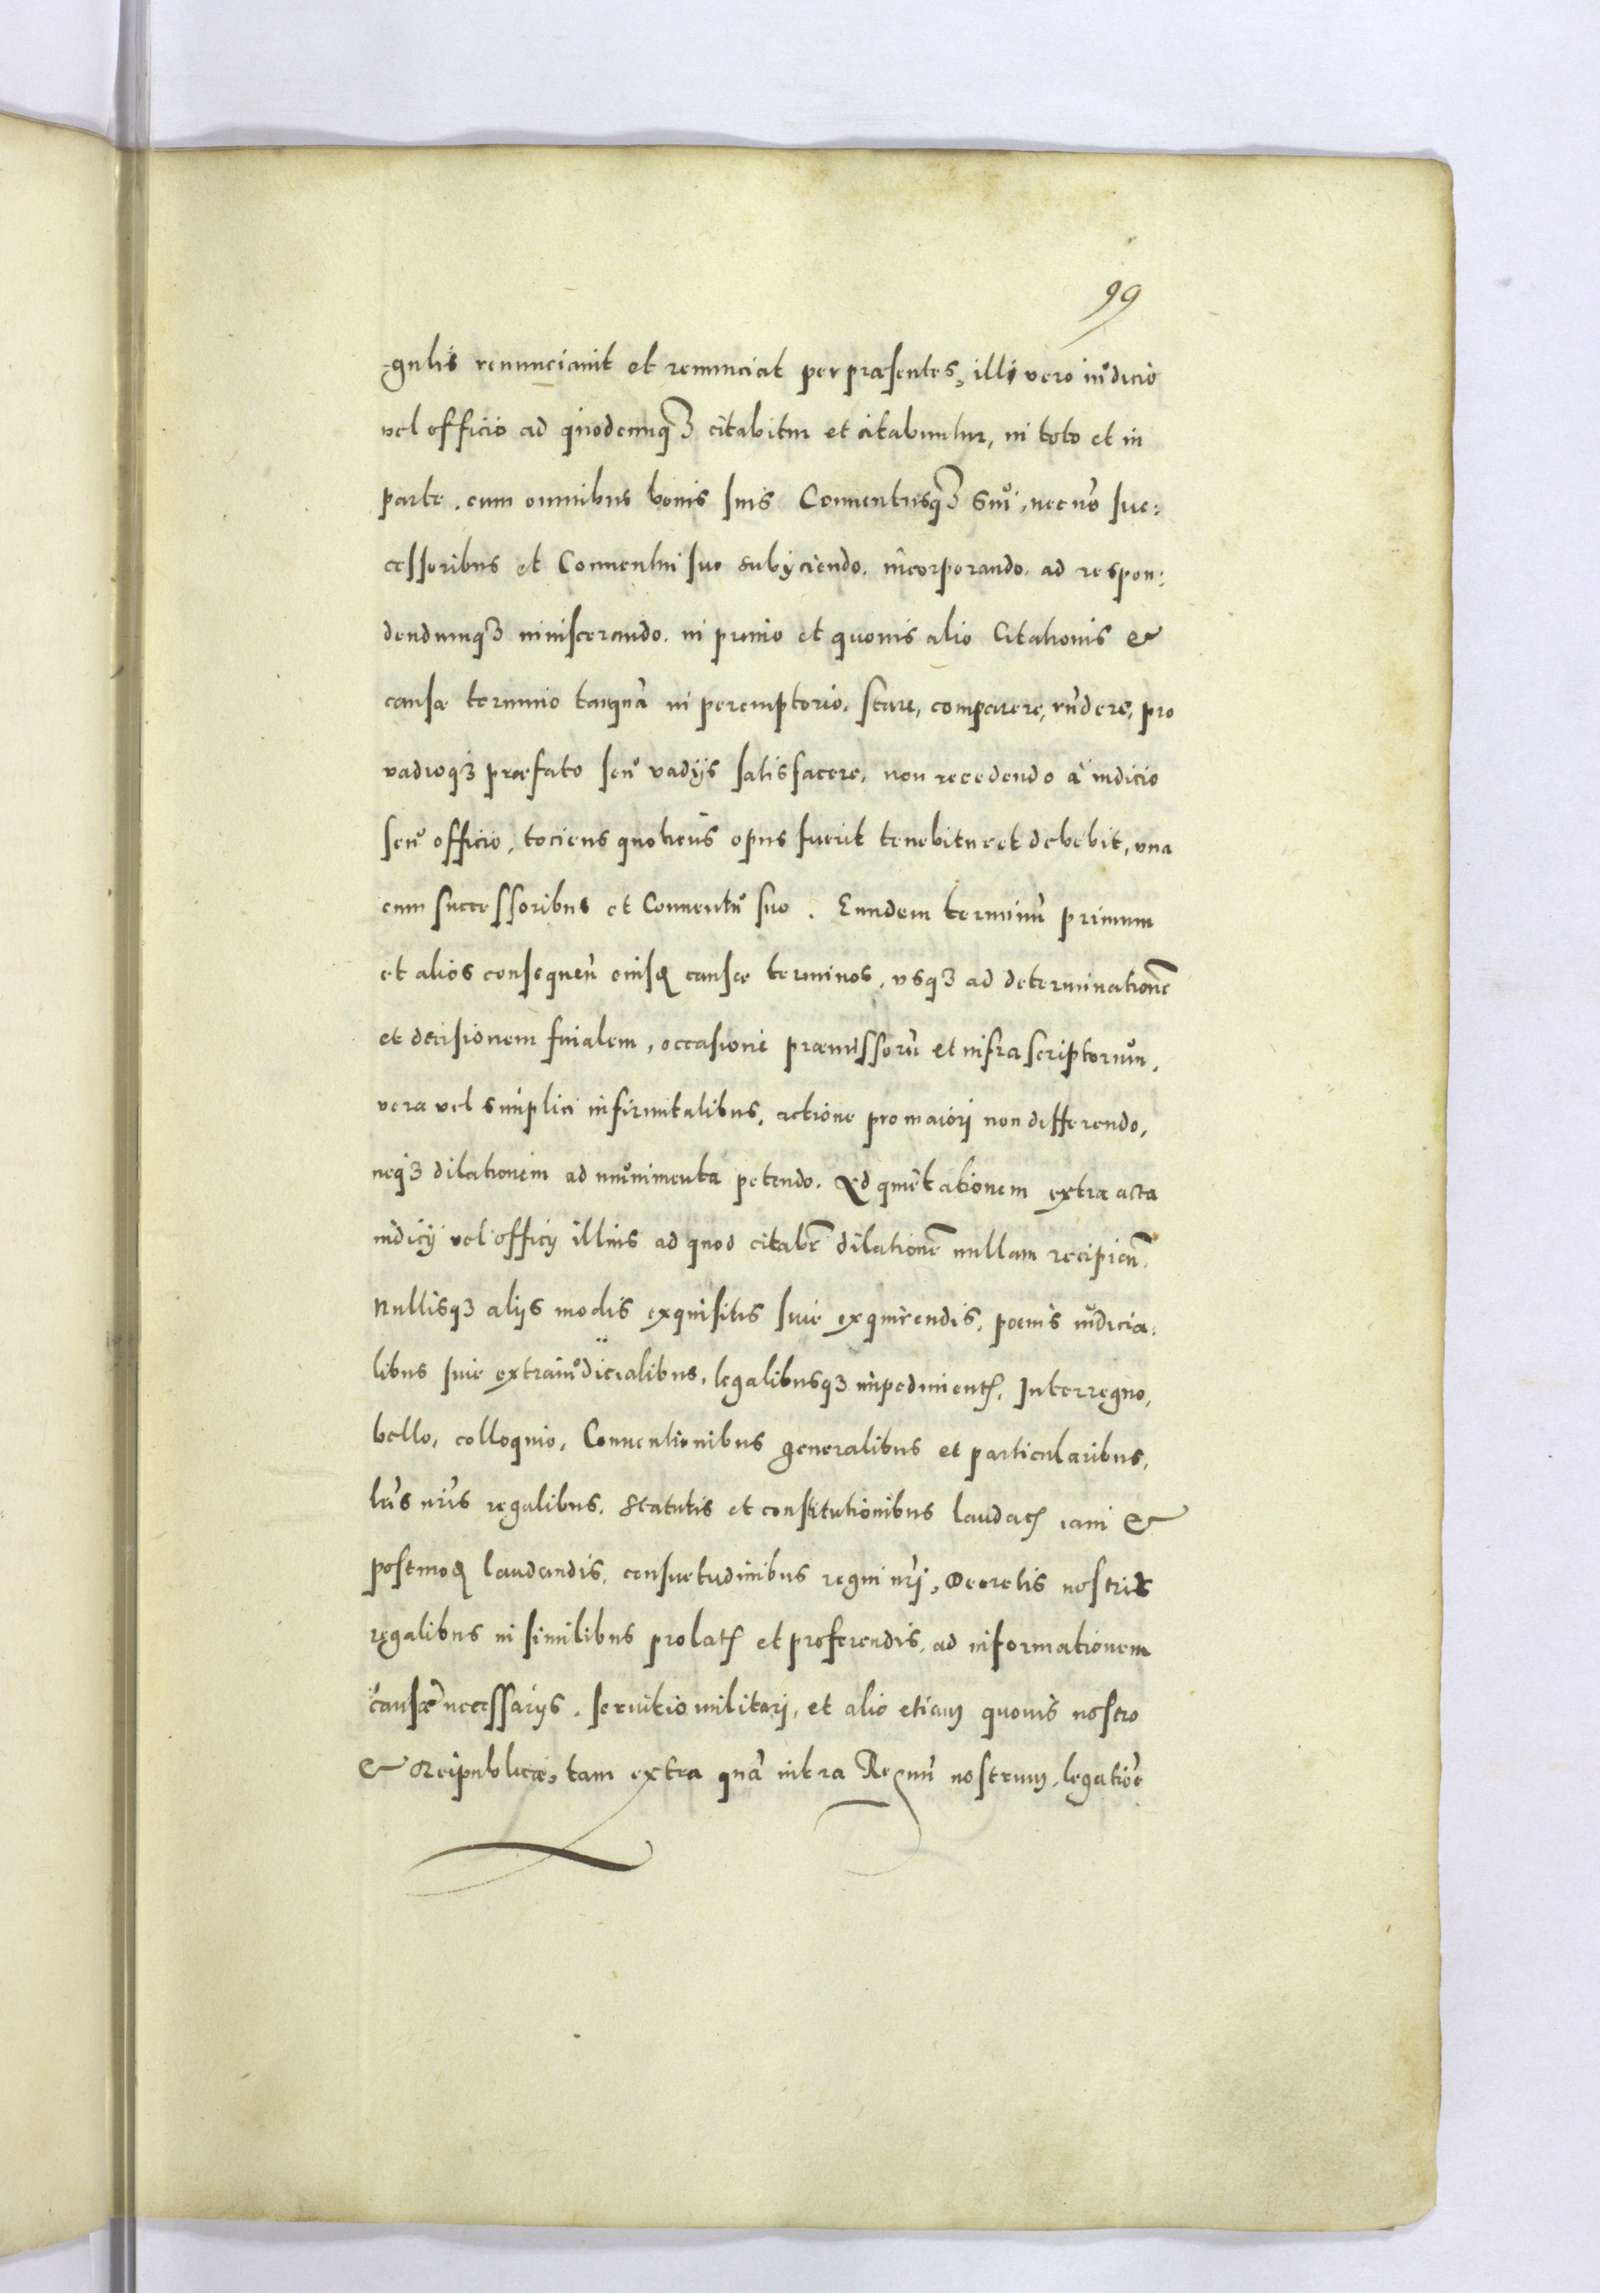 99
gulis renunciauit et renunciat per præsentes, illi vero iudicio
vel officio ad quodcunqꝫ citabitur et citabuntur, in toto et in
parte, cum omnibus bonis suis Conuentusqꝫ Sui, necnõ suc:
cessoribus et Conuentui suo subijciendo, incorporando, ad respon:
dendumqꝫ inuiscerando. in primo et quouis alio Citationis &
causæ termino tanquã in peremptorio. stare, comparere, rñdere, pro
vadioqꝫ præfato seu vadijs satisfacere, non recedendo à iudicio
seu officio, tociens quotiens opus fuerit tenebitur et debebit, vna
cum successoribus et Conuentu suo. Eundem terminũ primum
et alios consequeñ eiusdꝫ causæ terminos, vsqꝫ ad determinationẽ
et decisionem finalem, occasione præmissorũ et infrascriptorum,
vera vel simplici infirmitatibus, actione pro maiori non differendo,
neqꝫ dilationem ad munimenta petendo. Ad quietationem extra acta
iudicij vel officij illius ad quod citabr̃ dilationẽ nullam recipieñ.
Nullisqꝫ alijs modis exquisitis siue exquirendis, poenis iudicia:
libus siue extraiudicialibus, legalibusqꝫ impedimentꝭ, Interregno,
bello, colloquio, Conuentionibus generalibus et particularibus,
lr̃is nr̃is regalibus. statutis et constitutionibus laudatꝭ iam &
postmodꝫ laudandis, consuetudinibus regni nr̃j, Decretis nostris
regalibus in similibus prolatꝭ et proferendis, ad informationem
causæ necessarijs. seruitio militarj, et alio etiam quouis nostro
& Reipublicæ, tam extra quã intra Regnũ nostrum, legatiõe